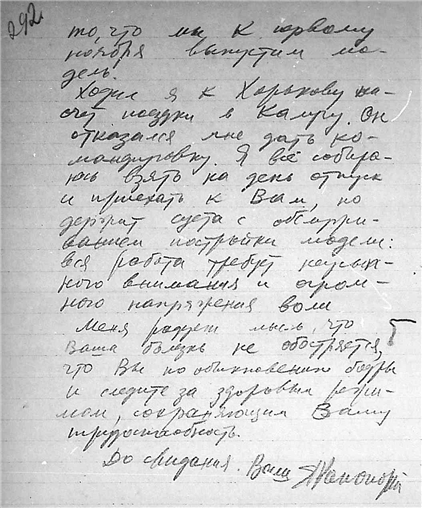 292
то, что мы к первому
ноября выпустим мо-
дель.
Ходил я к Харькову на-
счет поездки в Калугу. Он
отказался мне дать ко-
мандировку. Я всё собира-
юсь взять на день отпуск
и приехать к Вам, но
держит суета с
постройки модели:
вся работа требует
ного внимания и огром-
ного напряжения воли
Меня радует мысль, что
Ваша болезнь не обостряется,
что Вы по обыкновению бодры
и следите за здоровым режи-
мом, сохраняющим Вашу
трудоспособность.
До свидания. Ваш